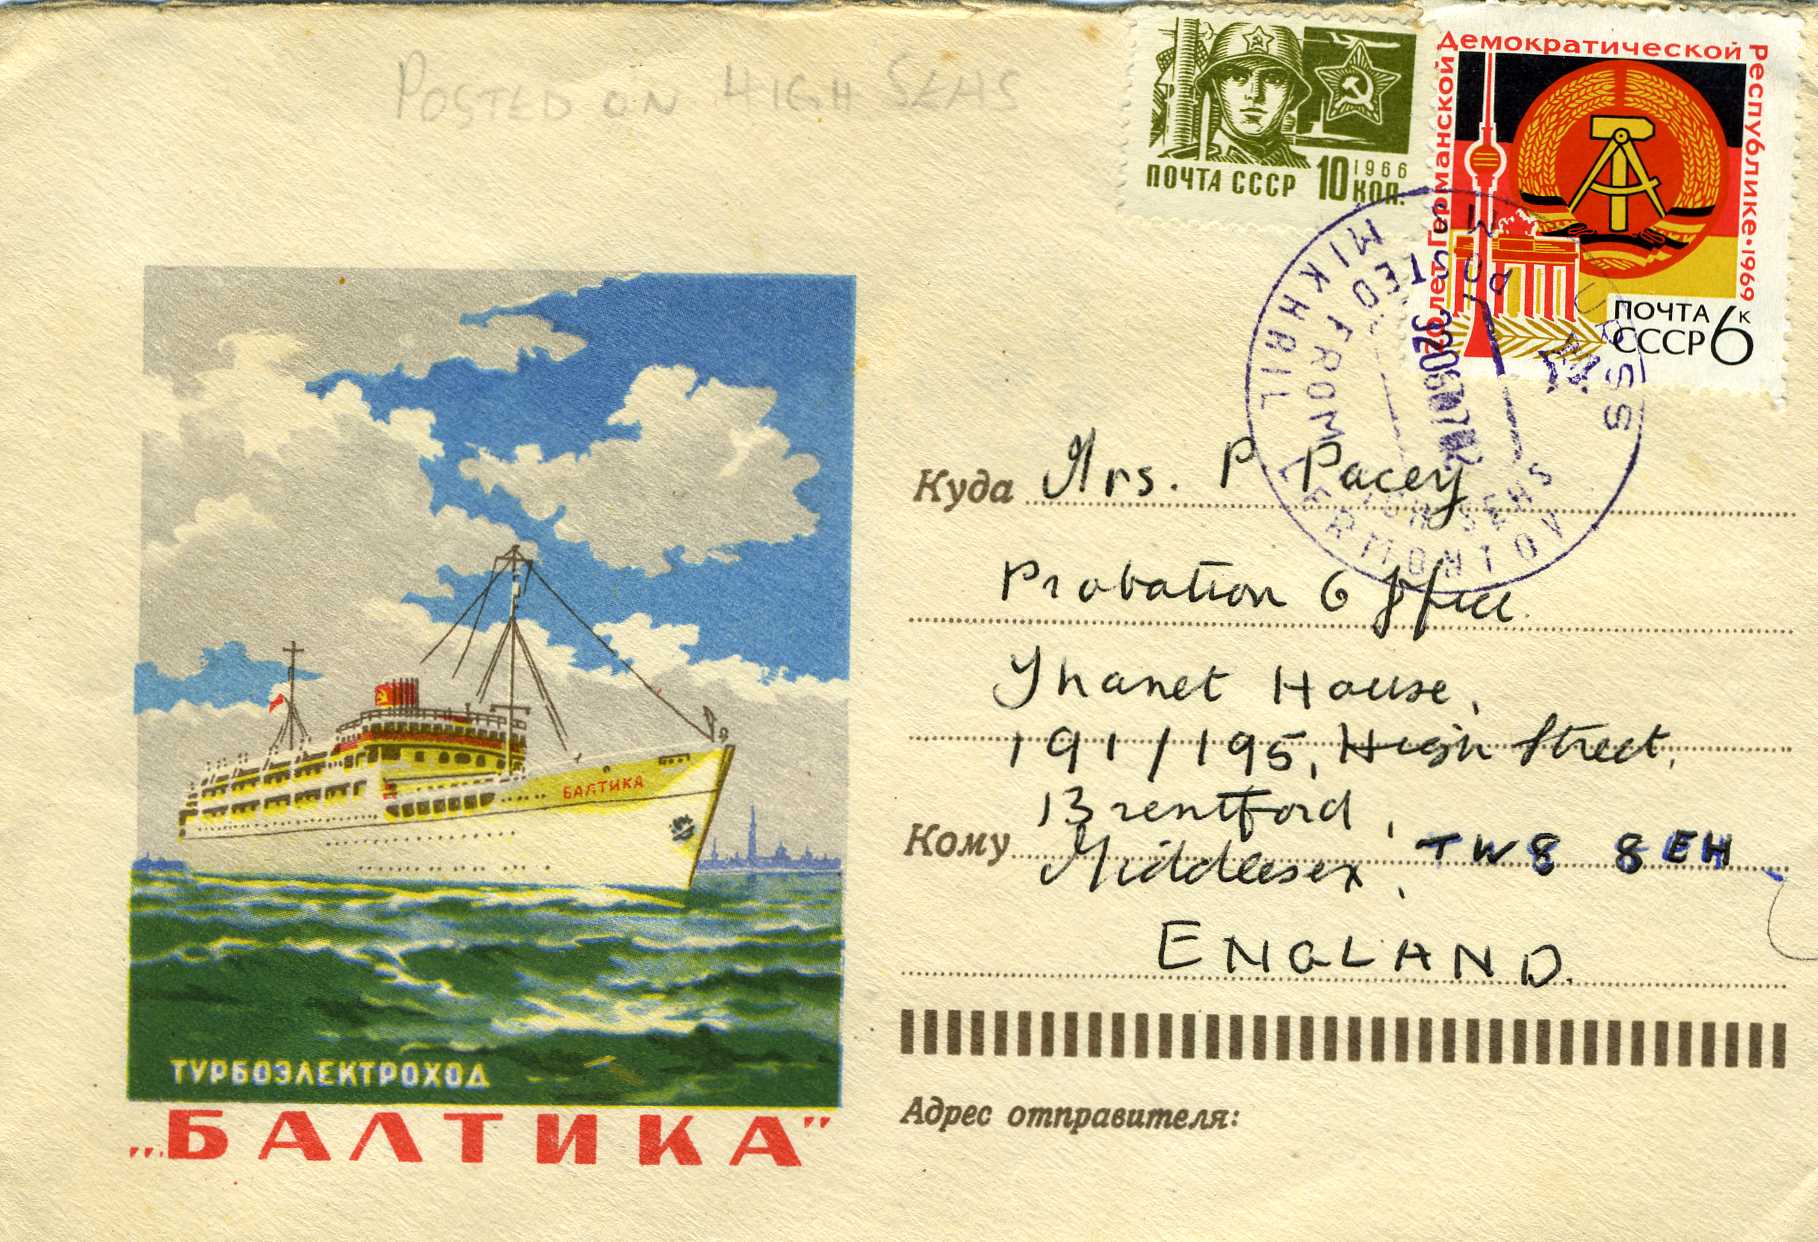 POSTED ON HIGH SEAS
ПОЧТА СССР 10 КОП.
1966
20 лет Германской Демократической Республике • 1969
ПОЧТА
СССР 6 К
M.S. MIKHAIL LERMONTOV
U.R.S.S.
POSTED FROM HIGH SEAS
Куда Mrs. P Pacey
Probation Office.
Thanet House,
191/195, High Street,
Brentford,
Кому Middlesex, TW8 8EH
ENGLAND.
Адрес отправителя:
БАЛТИКА
ТУРБОЭЛЕКТРОХОД
„БАЛТИКА”